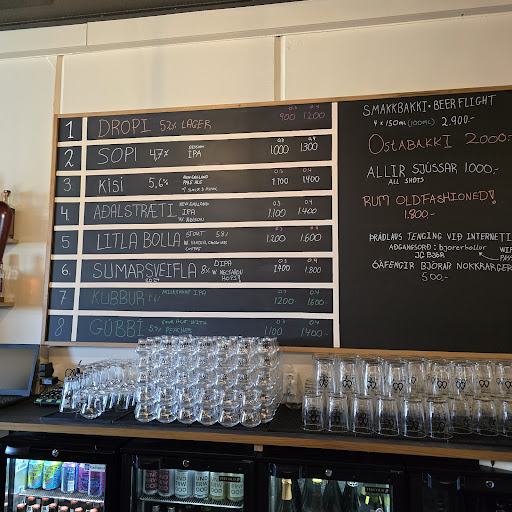 1 DROPI 5,2% LAGER 0.3 900 0.4 1200
2 SOPI 4,7% SESSION IPA 0.3 1.000 0.4 1.300
3 KISI 5,6% NEW ENGLAND PALE ALE 0.3 1.100 0.4 1.400
4 AÐALSTRÆTI NEW ENGLAND IPA 0.3 1.100 0.4 1.400
5 LITLA BOLLA STOUT 5.8% W. VANILLA, CHOCOLATE COFFEE 0.3 1.200 0.4 1.600
6 SUMARSVEIFLA 8% DIPA W. NECTARON HOPS! 0.3 1400 0.4 1.800
7 KUBBUR IPA 0.3 1200 0.4 1600
8 GÚBBÍ 5.7% SOUR ALE WITH PEACHES 0.3 1100 0.4 1400
SMAKKBAKKI · BEER FLIGHT
4 x 150ml (100ML) 2.900-
OSTABAKKI 2000-
ALLIR SJÚSSAR 1000,-
ALL SHOTS
RUM OLDFASHIONED!
1.800-
ÞRÁÐLAUS TENGING VIÐ INTERNETI
AÐGANGSORÐ: bjorerhollur
WIF
PAS
ÓÁFENGIR BJÓRAR NOKKRARGER
500,-